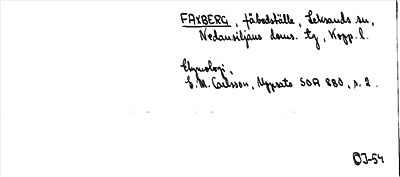 FAXBERG, fäbodställe, Leksands sn,
Nedansiljans doms. tg, Kopp. l.
Etymologi.
E. M. Carlsson, Uppsats SOA 880, s. 2.
OJ-54